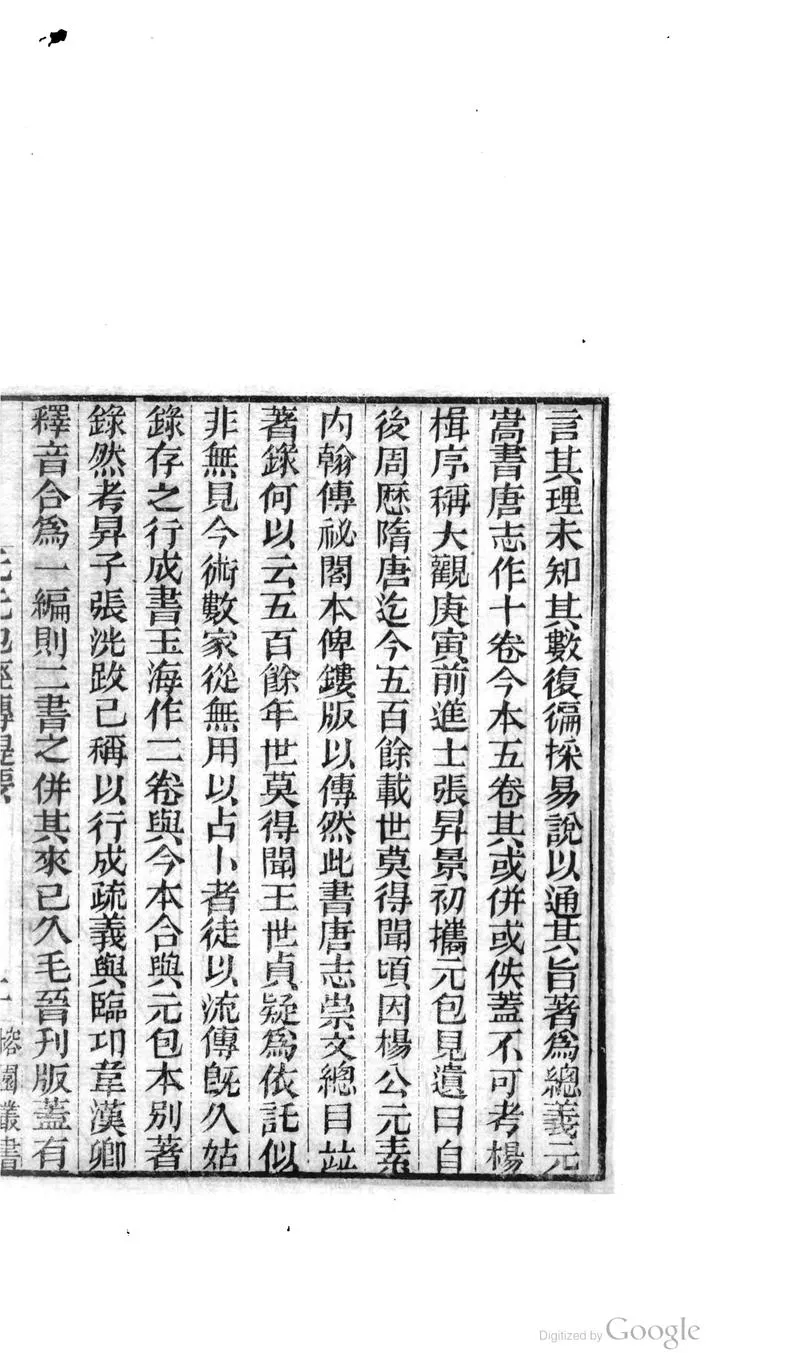 言其理未知其數復徧採易說以通其旨著爲總義元
嵩書唐志作十卷今本五卷其或併或佚蓋不可考楊
楫序稱大觀庚寅前進士張昇景初攜元包見遺曰自
後周歷隋唐迄今五百餘載世莫得聞頃因楊公元素
内翰傳祕閣本俾鏤版以傳然此書唐志崇文總目竝
著錄何以云五百餘年世莫得聞王世貞疑爲依託似
非無見今術數家從無用以占卜者徒以流傳旣久姑
錄存之行成書玉海作二卷與今本合與元包本別著
錄然考昇子張洸跋已稱以行成疏義與臨邛韋漢卿
釋音合爲一編則二書之併其來已久毛晉刊版蓋有
元包經傳提要
榕園叢書
Digitized by Google